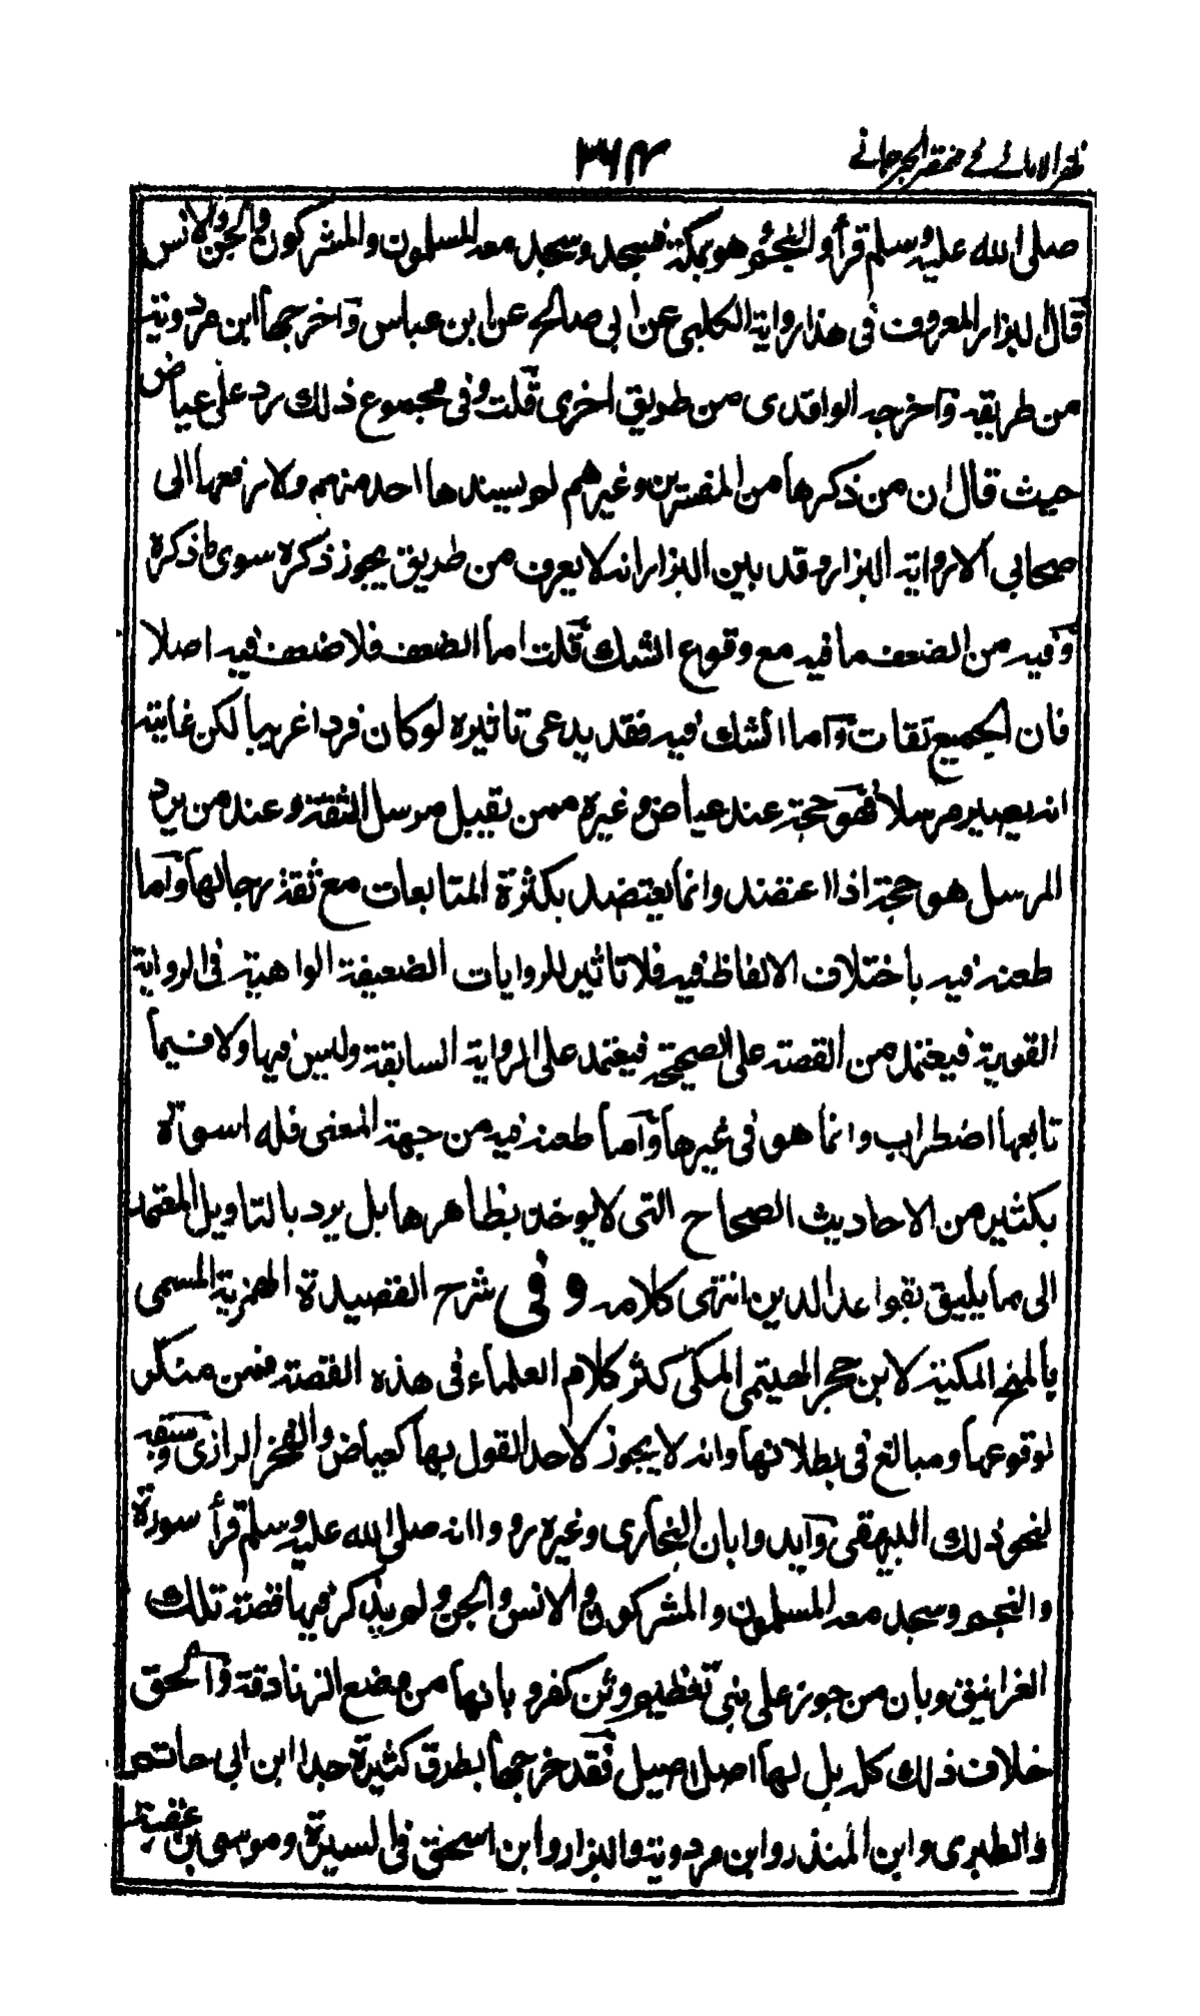 ظفر الامانے فے مختصر الجرجانے
۳۶۴
صلى الله عليه وسلم قرأ والنجم وهو بمكة فسجد وسجد معه المسلمون والمشركون والجن والانس
قال البزار المعروف فى هذا رواية الكلبى عن ابى صالح عن ابن عباس واخرجها ابن مردوية
من طريقه واخرجه الواقدى من طريق اخرى قلت وفى مجموع ذلك رد على عياض
حيث قال ان من ذكرها من المفسرين وغيرهم لم يسندها احد منهم ولا رفعها الى
صحابى الا رواية البزار وقد بين البزار انه لا يعرف من طريق يجوز ذكره سوى ما ذكره
وفيه من الضعف ما فيه مع وقوع الشك قلت اما الضعف فلا ضعف فيه اصلا
فان الجميع ثقات واما الشك فيه فقد يدعى تاثيره لو كان فردا غريبا لكن غايته
انه يصير مرسلا فهو حجة عند عياض وغيره ممن يقبل مرسل الثقة وعند من يرد
المرسل هو حجة اذا اعتضد وانما يعتضد بكثرة المتابعات مع ثقة رجالها واما
طعنه فيه باختلاف الالفاظ فيه فلا تاثير للروايات الضعيفة الواهية فى الرواية
القوية فيعتمد من القصة على الصحيحة فيعتمد على الرواية السابقة وليس فيها ولا فيما
تابعها اضطراب وانما هو فى غيرها واما طعنه فيه من جهة المعنى فله اسوة
بكثير من الاحاديث الصحاح التى لا يوخذ بظاهرها بل يرد بالتاويل المعتمد
الى ما يليق بقواعد الدين انتهى كلامه وفى شرح القصيدة الهمزية المسمى
بالمنح المكية لابن حجر الهيتمى المكى كثر كلام العلماء فى هذه القصة فمن منكر
لوقوعها ومبالغ فى بطلانها وانه لا يجوز لاحد القول بها كعياض والفخر الرازى وسبقه
لنحو ذلك البيهقى وايد وابان البخارى وغيره رووا انه صلى الله عليه وسلم قرأ سورة
والنجم وسجد معه المسلمون والمشركون والانس والجن ولم يذكر فيها قصة تلك
الغرانيق وبان من جوز على نبى تعظيم وثن كفر وبانها من وضع الزنادقة والحق
خلاف ذلك كله بل لها اصل اصيل فقد خرجها بطرق كثيرة جدا ابن ابى حاتم
والطبرى وابن المنذر وابن مردوية والبزار وابن اسحق فى السيرة وموسى بن عقبة